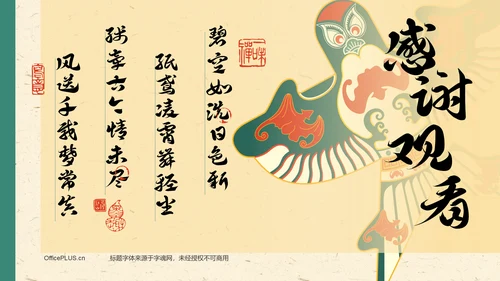 感谢观看
碧空如洗日色新
纸鸢凌霄舞轻尘
情未尽
风送千载梦常
OfficePLUS.cn
标题字体来源于字魂网，未经授权不可商用